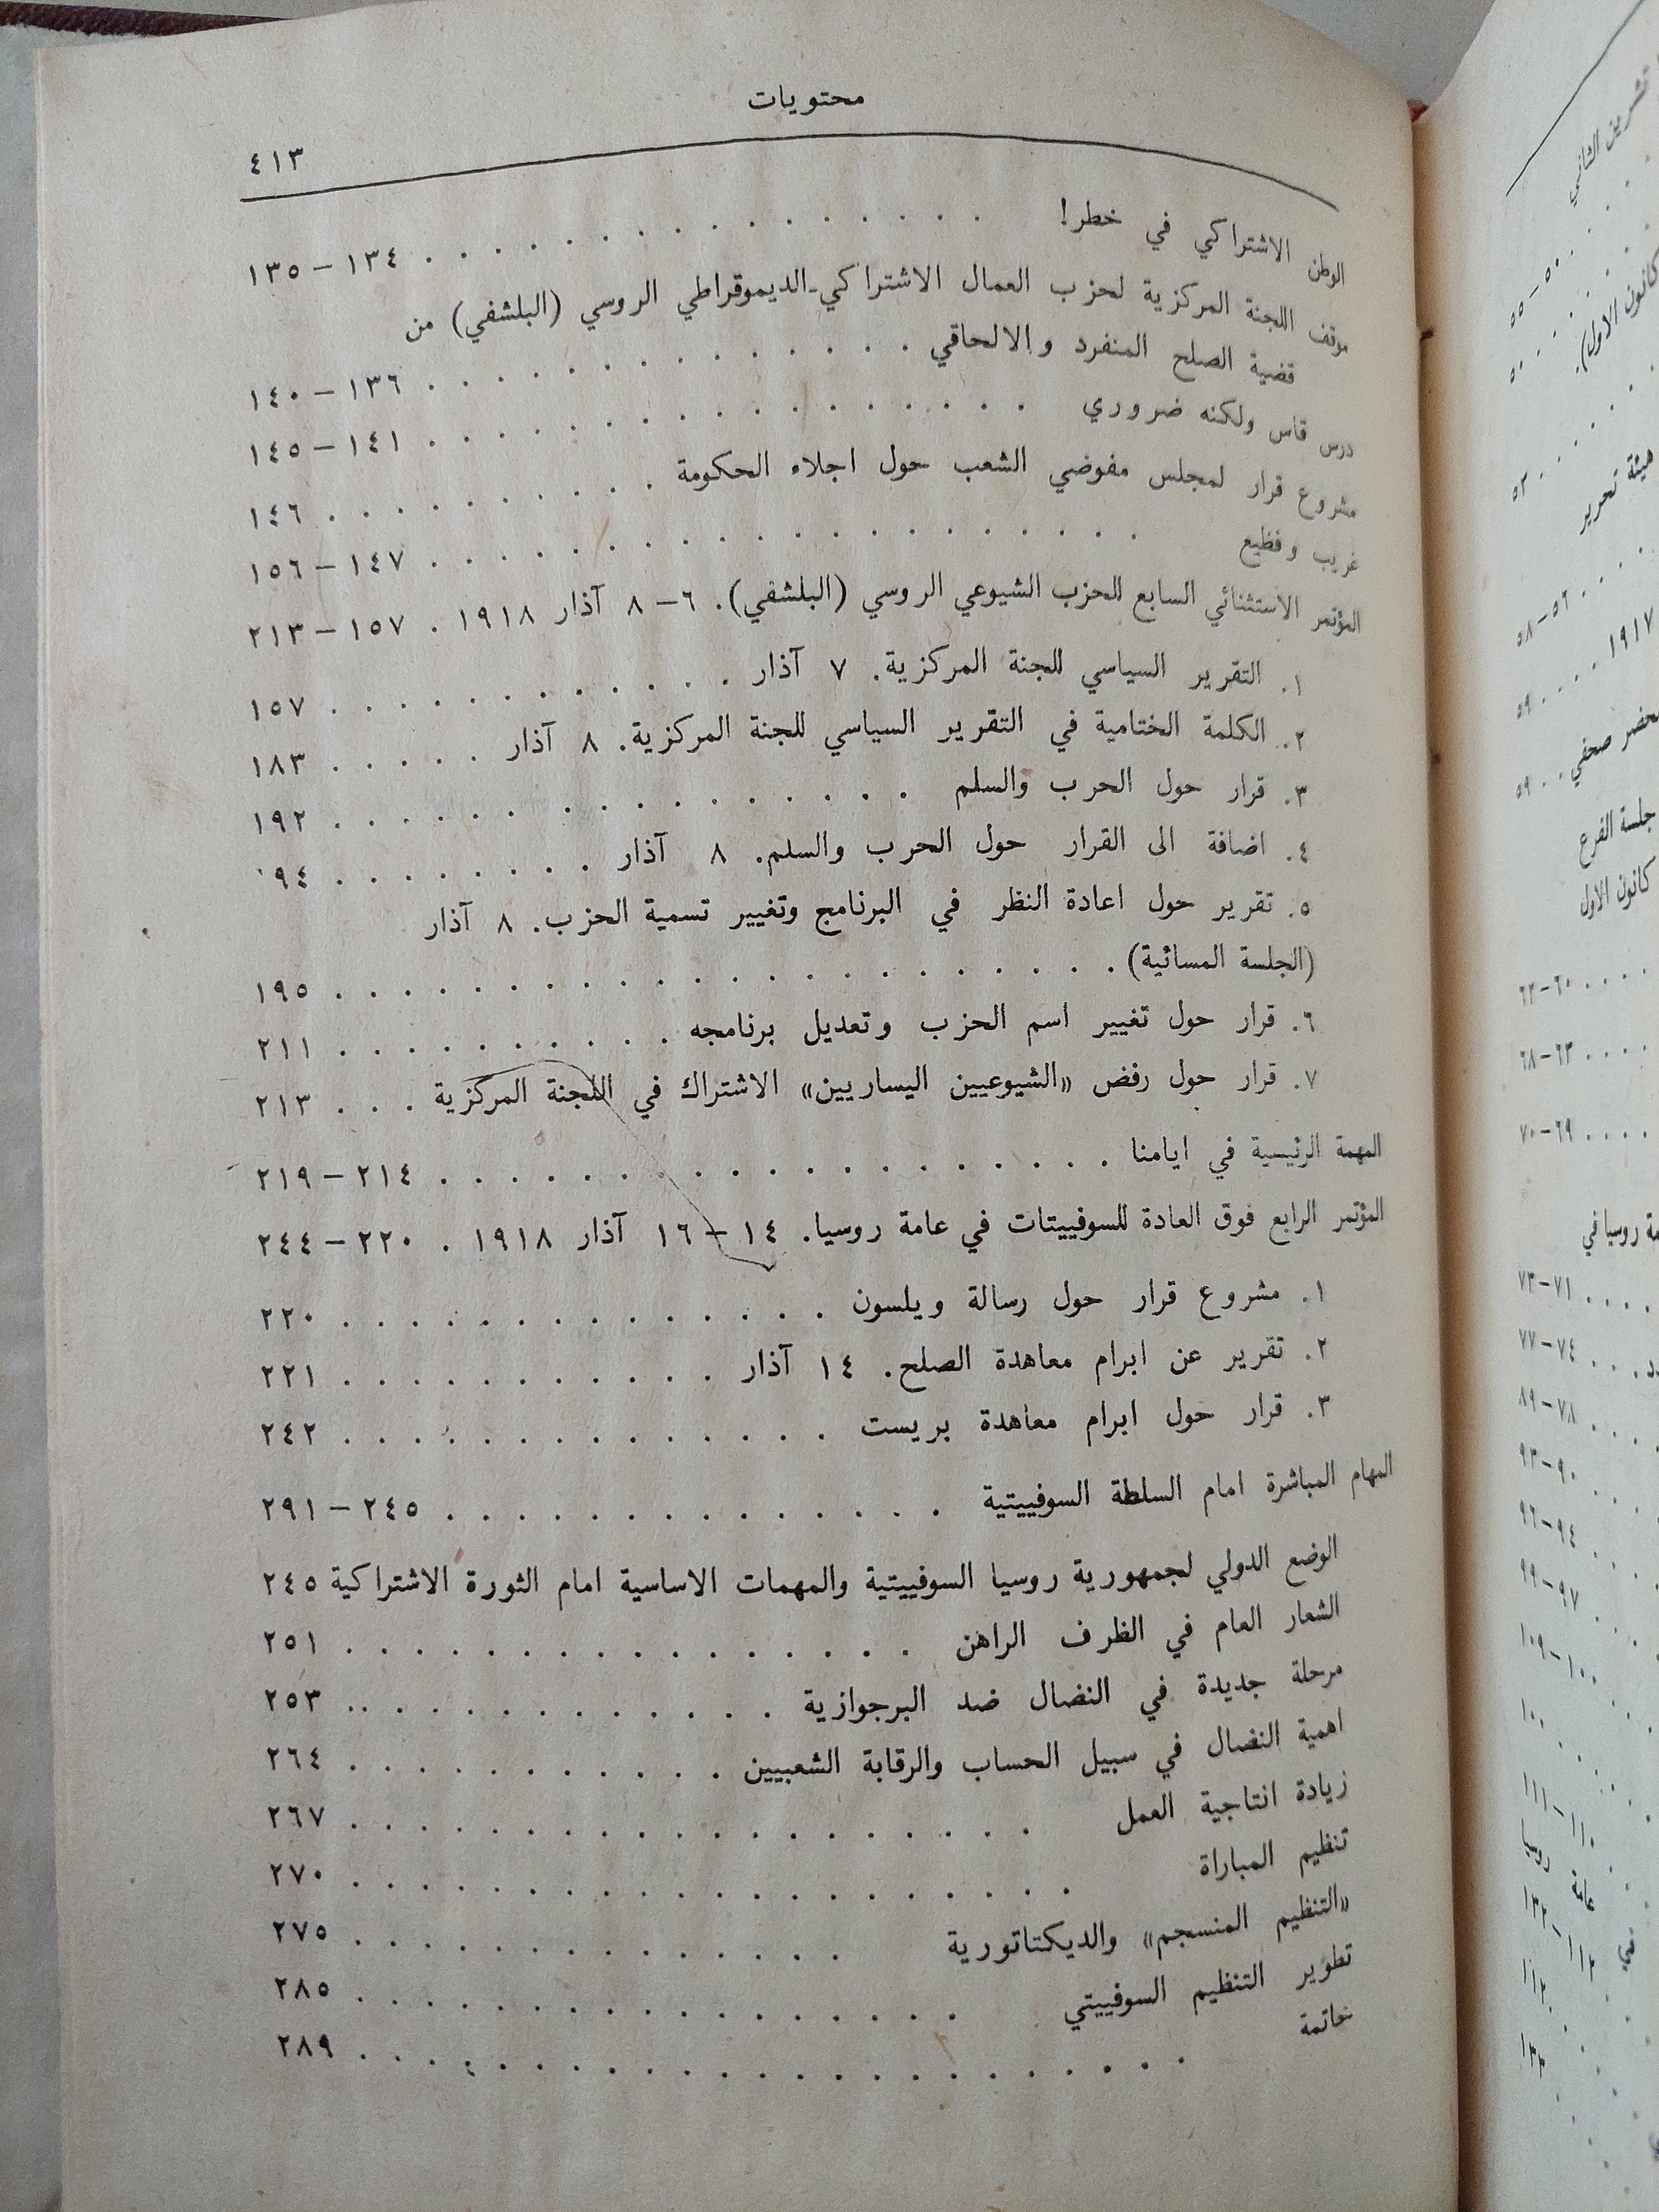 محتويات
٤١٣
الوطن الاشتراكي في خطر! . . . . . . . . . . . . . . . . ١٣٤ – ١٣٥
موقف اللجنة المركزية لحزب العمال الاشتراكي-الديموقراطي الروسي (البلشفي) من
قضية الصلح المنفرد والالحاقي . . . . . . . . . . . . . . ١٣٦ – ١٤٠
درس قاس ولكنه ضروري . . . . . . . . . . . . . . . . . . ١٤١ – ١٤٥
مشروع قرار لمجلس مفوضي الشعب حول اجلاء الحكومة . . . . . . . . . . ١٤٦
غريب وفظيع . . . . . . . . . . . . . . . . . . . . . ١٤٧ – ١٥٦
المؤتمر الاستثنائي السابع للحزب الشيوعي الروسي (البلشفي). ٦ – ٨ آذار ١٩١٨ . ١٥٧ – ٢١٣
١. التقرير السياسي للجنة المركزية. ٧ آذار . . . . . . . . . . . . ١٥٧
٢. الكلمة الختامية في التقرير السياسي للجنة المركزية. ٨ آذار . . . . . ١٨٣
٣. قرار حول الحرب والسلم . . . . . . . . . . . . . . . . . ١٩٢
٤. اضافة الى القرار حول الحرب والسلم. ٨ آذار . . . . . . . . ٩٤
٥. تقرير حول اعادة النظر في البرنامج وتغيير تسمية الحزب. ٨ آذار
(الجلسة المسائية) . . . . . . . . . . . . . . . . . . . . . . . ١٩٥
٦. قرار حول تغيير اسم الحزب وتعديل برنامجه . . . . . . . . . . ٢١١
٧. قرار حول رفض «الشيوعيين اليساريين» الاشتراك في اللجنة المركزية . . . ٢١٣
المهمة الرئيسية في ايامنا . . . . . . . . . . . . . . . . . . . . ٢١٤ – ٢١٩
المؤتمر الرابع فوق العادة للسوفييتات في عامة روسيا. ١٤ – ١٦ آذار ١٩١٨ . ٢٢٠ – ٢٤٤
١. مشروع قرار حول رسالة ويلسون . . . . . . . . . . . . . . ٢٢٠
٢. تقرير عن ابرام معاهدة الصلح. ١٤ آذار . . . . . . . . . . . ٢٢١
٣. قرار حول ابرام معاهدة بريست . . . . . . . . . . . . . . ٢٤٢
المهام المباشرة امام السلطة السوفييتية . . . . . . . . . . . . . . ٢٤٥ – ٢٩١
الوضع الدولي لجمهورية روسيا السوفييتية والمهمات الاساسية امام الثورة الاشتراكية ٢٤٥
الشعار العام في الظرف الراهن . . . . . . . . . . . . . . . . . ٢٥١
مرحلة جديدة في النضال ضد البرجوازية . . . . . . . . . . . . . .. ٢٥٣
اهمية النضال في سبيل الحساب والرقابة الشعبيين . . . . . . . . . . . ٢٦٤
زيادة انتاجية العمل . . . . . . . . . . . . . . . . . . . . ٢٦٧
تنظيم المباراة . . . . . . . . . . . . . . . . . . . . . ٢٧٠
«التنظيم المنسجم» والديكتاتورية . . . . . . . . . . . . . . ٢٧٥
تطوير التنظيم السوفييتي . . . . . . . . . . . . . . . . . . ٢٨٥
خاتمة . . . . . . . . . . . . . . . . . . . . . . . . ٢٨٩
تشرين الثاني
٥٠ – ٥٥
كانون الاول).
٥٠
٥٢
هيئة تحرير
٥٦ – ٥٨
١٩١٧ . . . . ٥٩
صحفي . . ٥٩
جلسة الفرع
كانون الاول
. . . . ٦٠ – ٦٢
. . . . ٦٣ – ٦٨
. . . . ٦٩ – ٧٠
روسيا في
. . . . ٧١ – ٧٣
. . . ٧٤ – ٧٧
. . . ٧٨ – ٨٩
٩٠ – ٩٣
٩٤ – ٩٦
٩٧ – ٩٩
١٠٠ – ١٠٩
١٠٠
١١٠ – ١١١
عامة روسيا